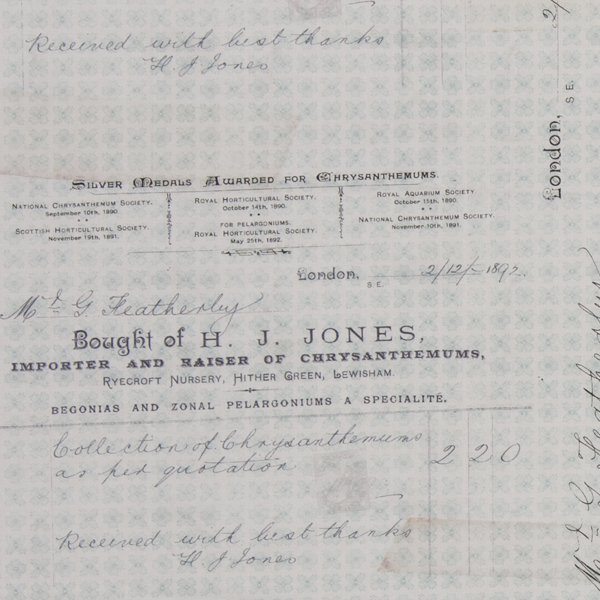 Received with best thanks
H. J Jones
London,
S.E.
Silver Medals Awarded for Chrysanthemums.
National Chrysanthemum Society.
September 10th, 1890.
Scottish Horticultural Society.
November 19th, 1891.
Royal Horticultural Society.
October 14th, 1890.
FOR PELARGONIUMS.
Royal Horticultural Society.
May 25th, 1892.
Royal Aquarium Society.
October 15th, 1890.
National Chrysanthemum Society.
November 10th, 1891.
London, S.E. 2/12/- 1892.
Mr G Featherby
Bought of H. J. JONES,
IMPORTER AND RAISER OF CHRYSANTHEMUMS,
Ryecroft Nursery, Hither Green, Lewisham.
BEGONIAS AND ZONAL PELARGONIUMS A SPECIALITÉ.
Collection of Chrysanthemums
as per quotation 2 2 0
Received with best thanks
H. J Jones
Mr G Featherby